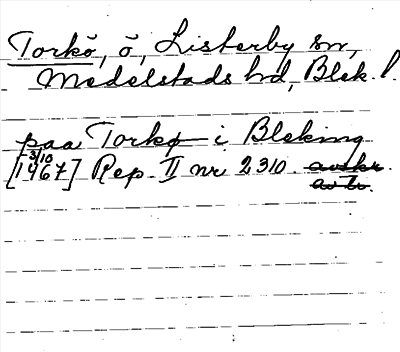 Torkö, ö, Listerby sn,
Medelstads hd, Blek. l.
paa Torkø i Bleking
3/10
[1467] Rep. II nr 2310. avskr.
avtr.